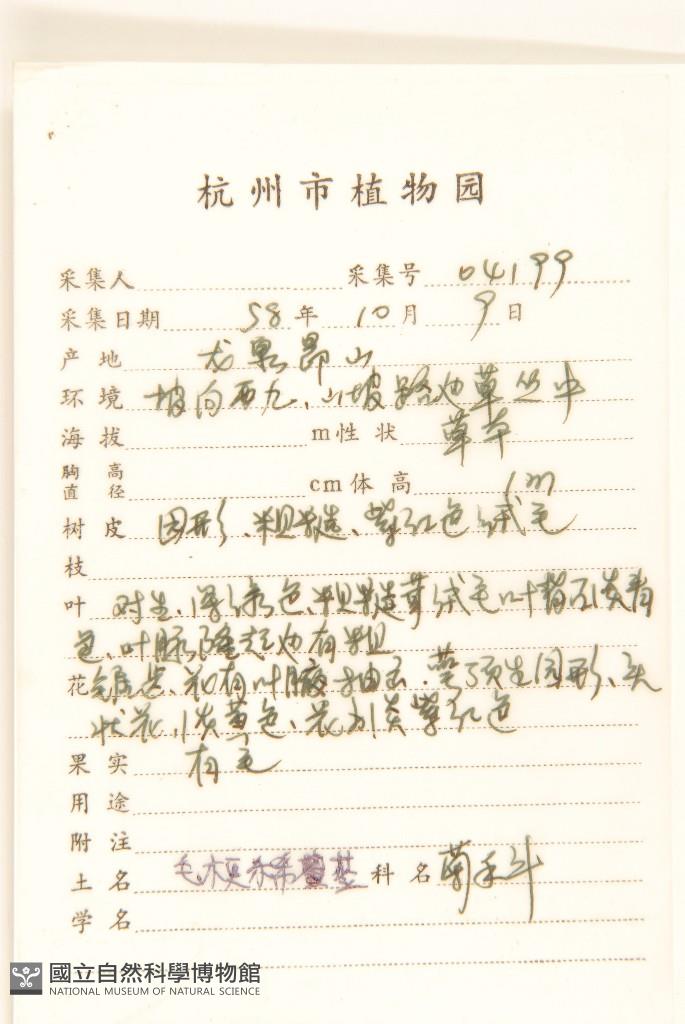 杭州市植物园
采集人 采集号 04199
采集日期 58 年 10 月 9 日
产地 龙泉昴山
环境 坡向西九、山坡路边草丛中
海拔 m 性状 草本
胸高直径 cm 体高 1m
树皮 园形、粗糙、紫红色绒毛
枝
叶 对生、深绿色、粗糙草绒毛叶背面淡青
色、叶脉隆起边有粗
花 锯齿、花有叶腋抽出、茎顶生园形、头
状花、淡黄色、花 淡紫红色
果实 有毛
用途
附注
土名 毛梗豨薟 科名 菊科
学名
國立自然科學博物館
NATIONAL MUSEUM OF NATURAL SCIENCE